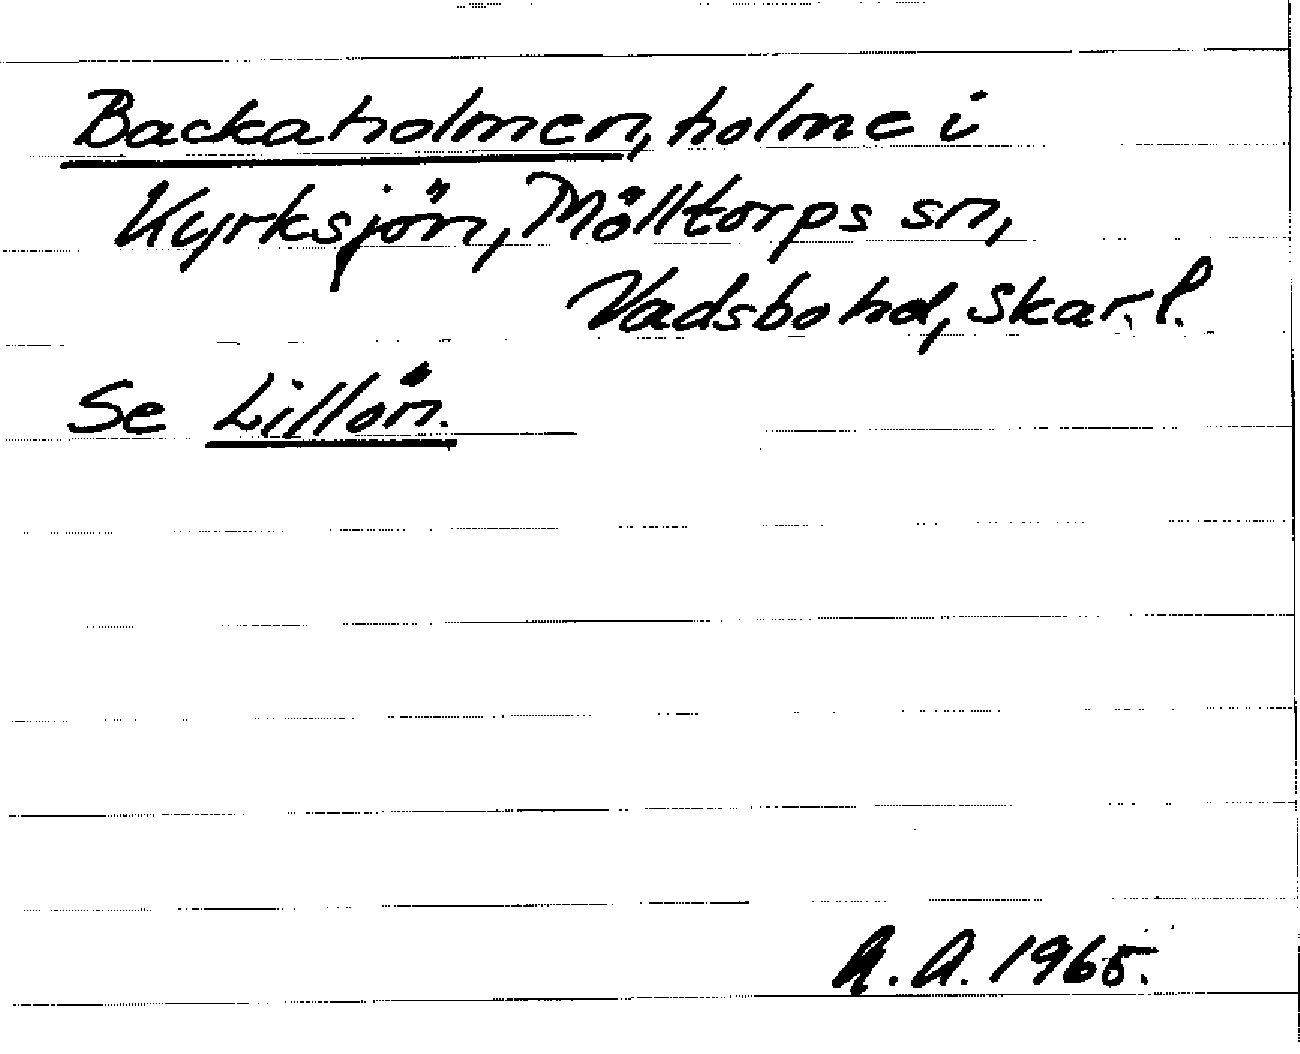 Backaholmen, holme i
Kyrksjön, Mölltorps sn,
Vadsbo hd, Skar. l.
Se Lillön.
A. A. 1965.